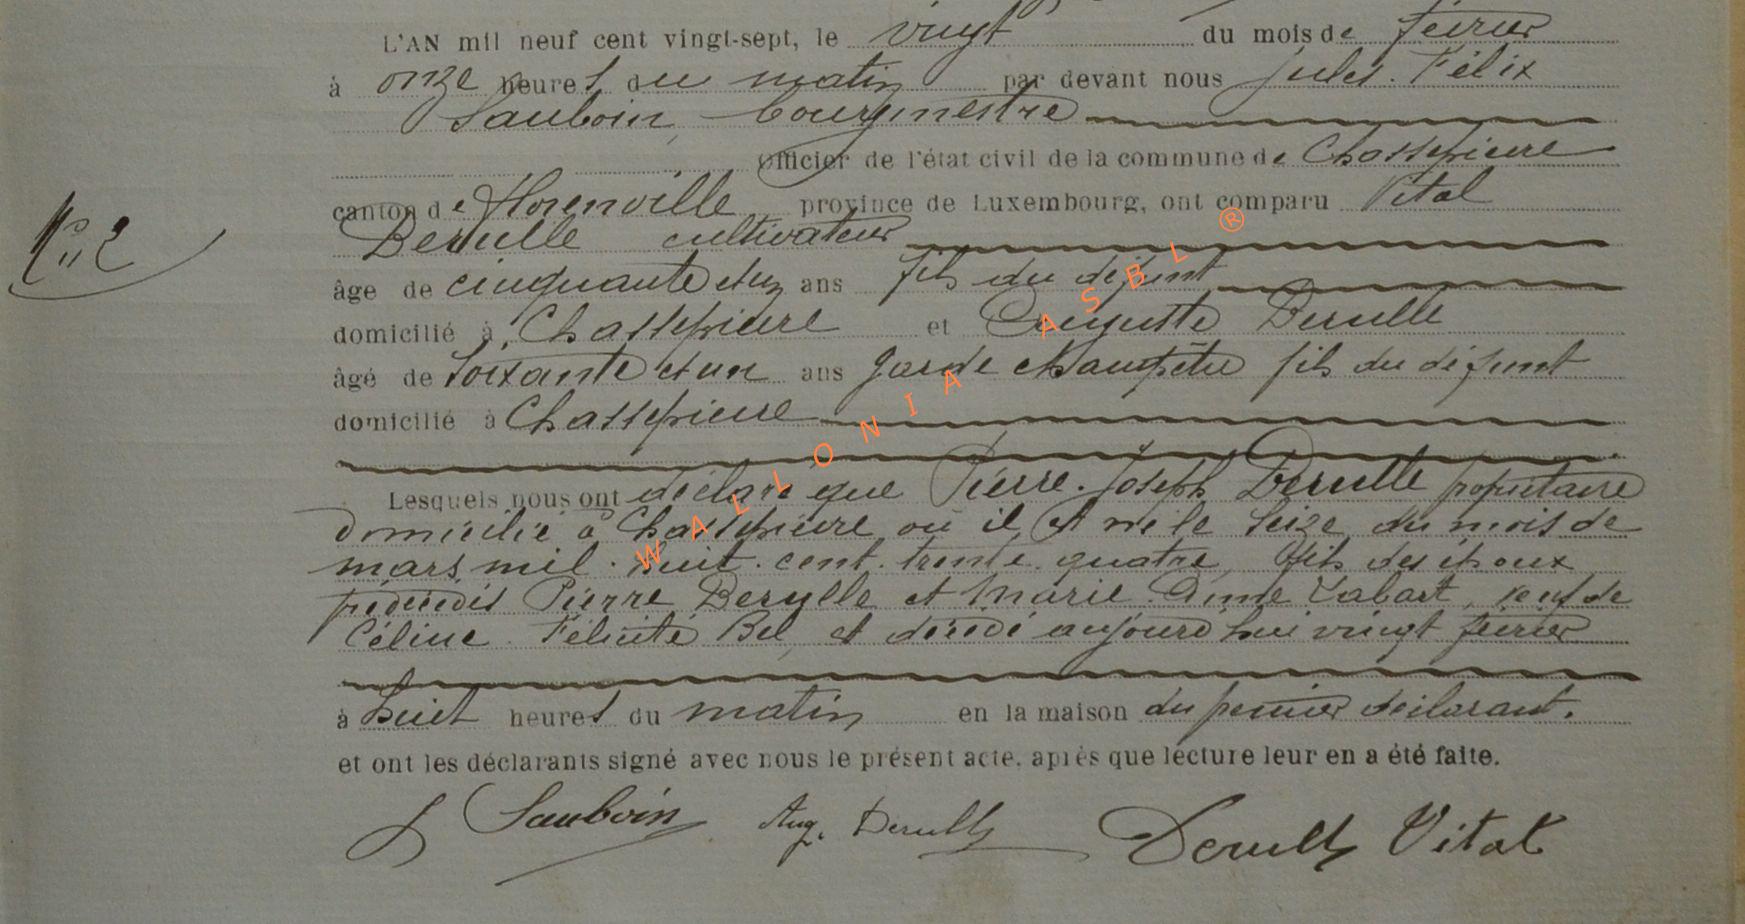 L'AN mil neuf cent vingt-sept, le vingt du mois de février
à onze heures du matin par devant nous Jules. Félix
Sauboin, bourgmestre
Officier de l'état civil de la commune de Chassepierre
canton de Florenville province de Luxembourg, ont comparu Vital
Derulle cultivateur
N° 2
âge de cinquante et un ans fils du défunt
domicilié à Chassepierre et Auguste Derulle
âgé de soixante et un ans garde champêtre fils du défunt
domicilié à Chassepierre
Lesquels nous ont déclaré que Pierre. Joseph Derulle propriétaire
domicilié à Chassepierre où il est né le seize du mois de
mars mil. huit. cent. trente. quatre, fils des époux
prédécédés Pierre Derulle et Marie Anne Labart, veuf de
Céline. Félicité Bel, est décédé aujourd'hui vingt février
à huit heures du matin en la maison du premier déclarant.
et ont les déclarants signé avec nous le présent acte, après que lecture leur en a été faite.
J Sauboin Aug. Derulle Derulle Vital
WALLONIA ASBL ®